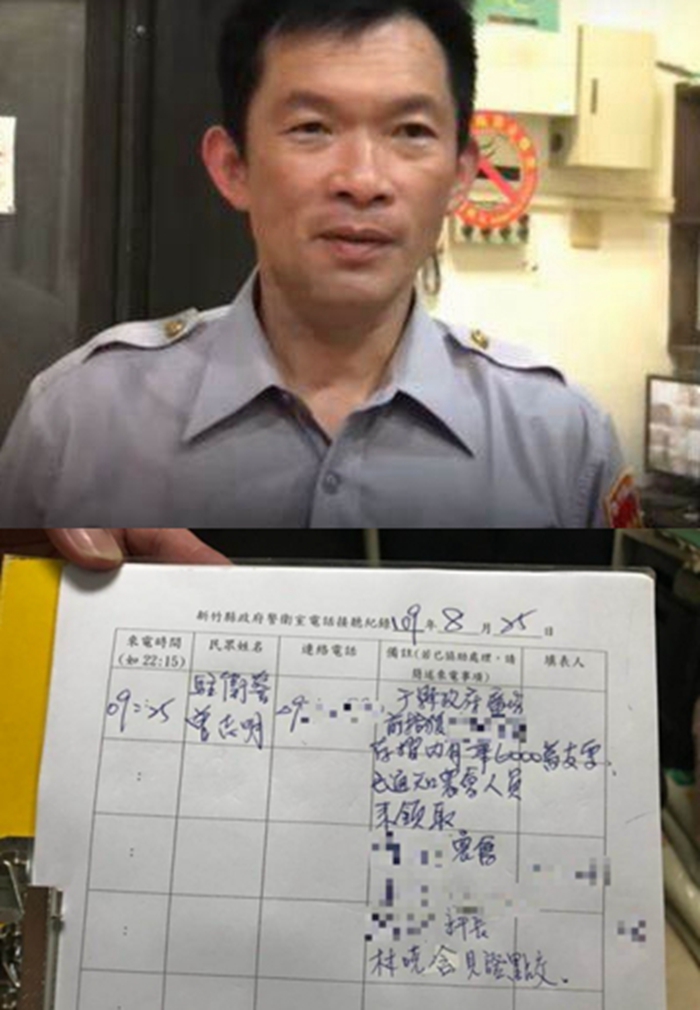 新竹縣政府警衛室電話接聽紀錄109年8月25日
來電時間
(如22:15)
民眾姓名
連絡電話
備註(若已協助處理，請
簡述來電事項)
填表人
09:25
駐衛警
曾志明
09
于縣政府
前拾獲
存摺內有一筆6000萬支票.
已通知客會人員
來領取
客會
科長
林曉含見證點交。
:
:
: